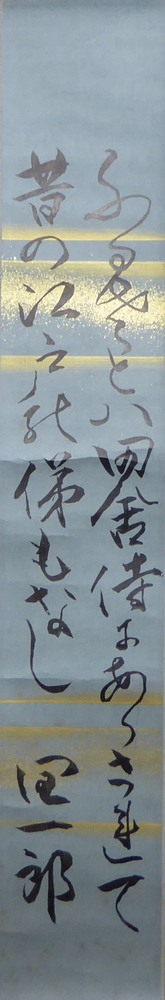 ふるさとハ田舎侍にあらされて
昔の江戸の俤もなし 潤一郎